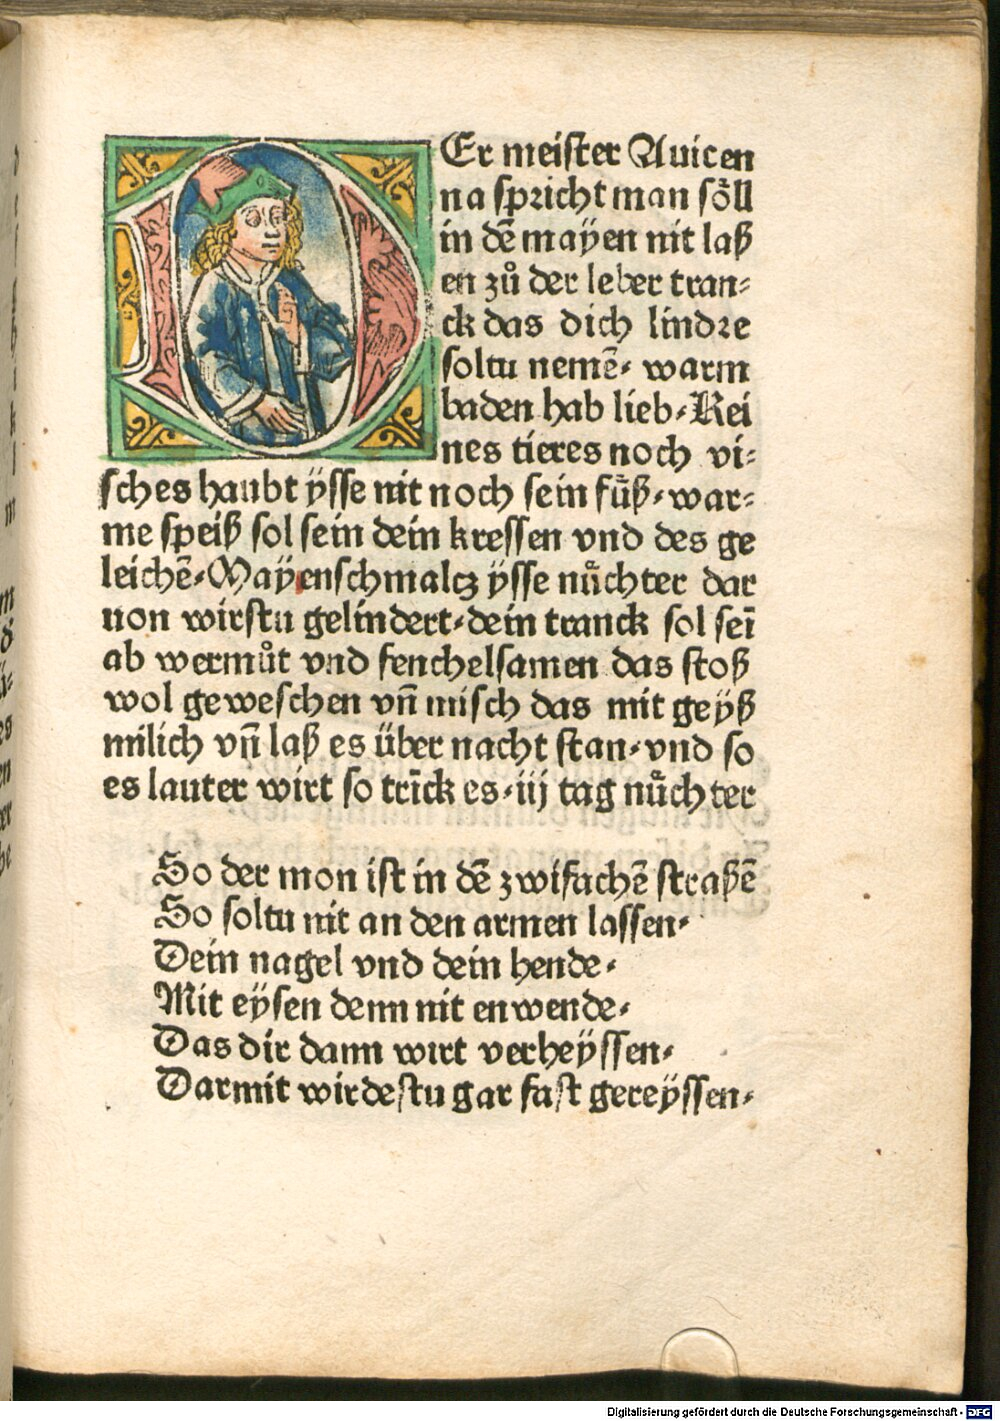 DEr meister Auicen
na spricht man söll
in dē mayen nit laß
en zů der leber tran⸗
ck das dich lindre
soltu nemē. warm
baden hab lieb. Kei
nes tieres noch vi⸗
sches haubt ÿsse nit noch sein fůß. war⸗
me speiß sol sein dein kressen vnd des ge
leichē. Mayenschmaltz ÿsse nůchter dar
uon wirstu gelindert. dein tranck sol seī
ab wermůt vnd fenchelsamen das stoß
wol geweschen vñ misch das mit geÿß
milich vñ laß es über nacht stan. vnd so
es lauter wirt so trīck es. iij tag nůchter
So der mon ist in dē zwifachē straßē
So soltu nit an den armen lassen.
Dein nagel vnd dein hende.
Mit eÿsen denn nit enwende.
Das dir dann wirt verheÿssen.
Darmit wirdestu gar fast gereÿssen.
Digitalisierung gefördert durch die Deutsche Forschungsgemeinschaft - DFG